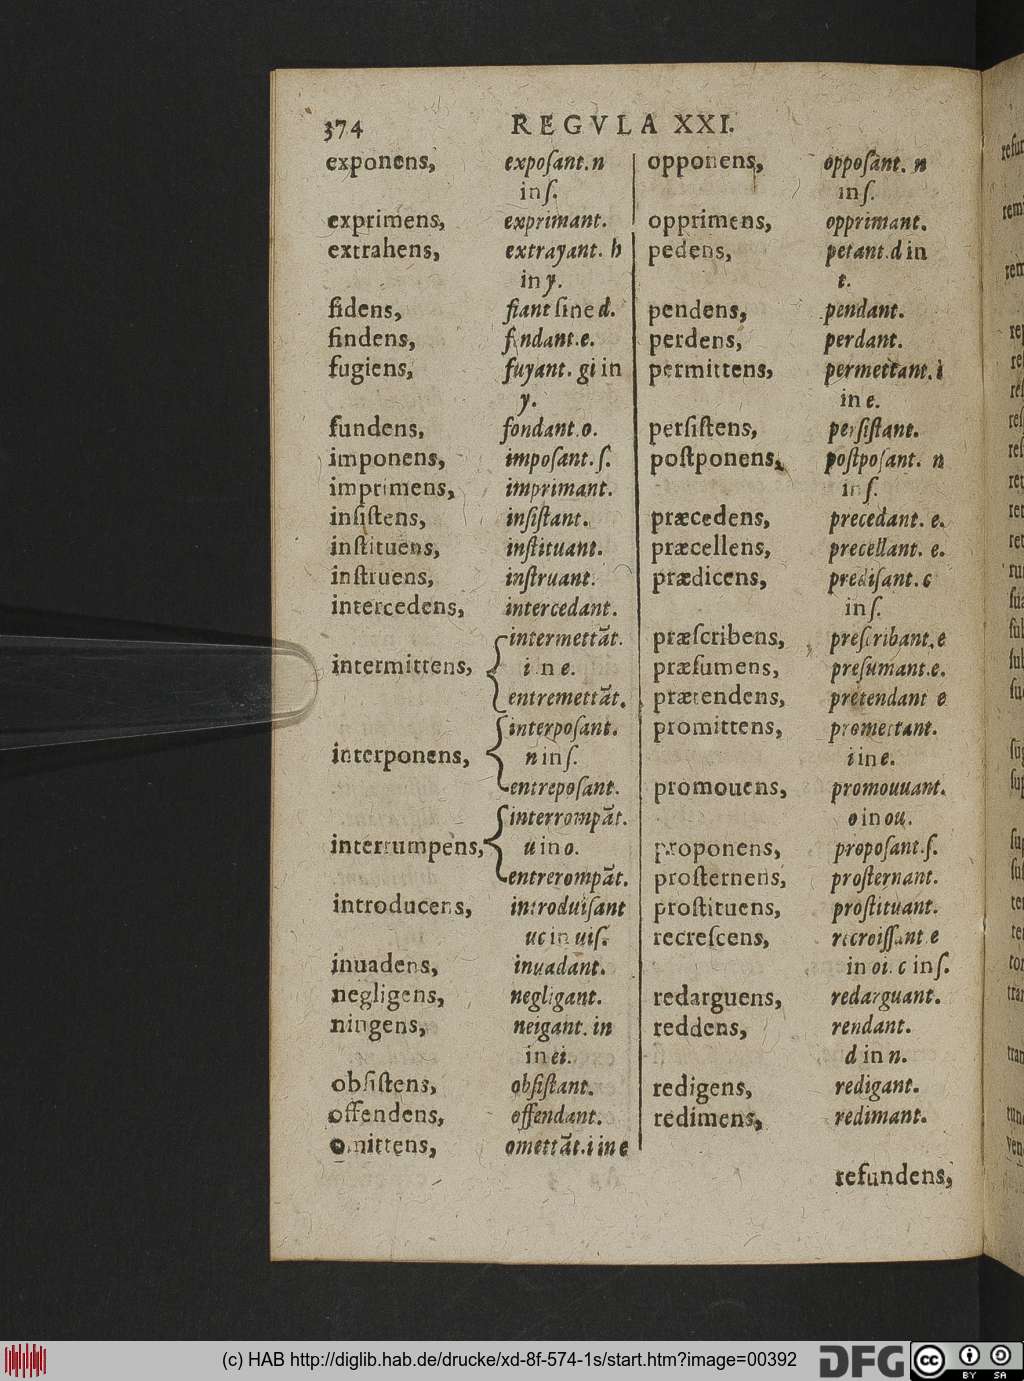 374 REGVLA XXI.
exponens, expoſant. n
in ſ.
exprimens, exprimant.
extrahens, extrayant. h
in y.
fidens, fiant ſine d.
findens, fendant. e.
fugiens, fuyant. gi in
y.
fundens, fondant. o.
imponens, impoſant. ſ.
imprimens, imprimant.
inſiſtens, inſiſtant.
inſtituens, inſtituant.
inſtruens, inſtruant.
intercedens, intercedant.
intermettãt.
intermittens, i in e.
entremettãt.
interpoſant.
interponens, n in ſ.
entrepoſant.
interrompãt.
interrumpens, u in o.
entrerompãt.
introducens, introduiſant
uc in uiſ.
inuadens, inuadant.
negligens, negligant.
ningens, neigant. in
in ei.
obſiſtens, obſiſtant.
offendens, offendant.
omittens, omettãt. i in e
opponens, oppoſant. n
in ſ.
opprimens, opprimant.
pedens, petant. d in
t.
pendens, pendant.
perdens, perdant.
permittens, permettant. i
in e.
perſiſtens, perſiſtant.
poſtponens, poſtpoſant. n
in ſ.
præcedens, precedant. e.
præcellens, precellant. e.
prædicens, prediſant. c
in ſ.
præſcribens, preſcribant. e
præſumens, preſumant. e.
prætendens, pretendant e
promittens, promettant.
i in e.
promouens, promouuant.
o in ou.
proponens, propoſant. ſ.
proſternens, proſternant.
proſtituens, proſtituant.
recreſcens, recroiſſant e
in oi. c in ſ.
redarguens, redarguant.
reddens, rendant.
d in n.
redigens, redigant.
redimens, redimant.
refundens,
(c) HAB http://diglib.hab.de/drucke/xd-8f-574-1s/start.htm?image=00392
DFG
cc BY SA